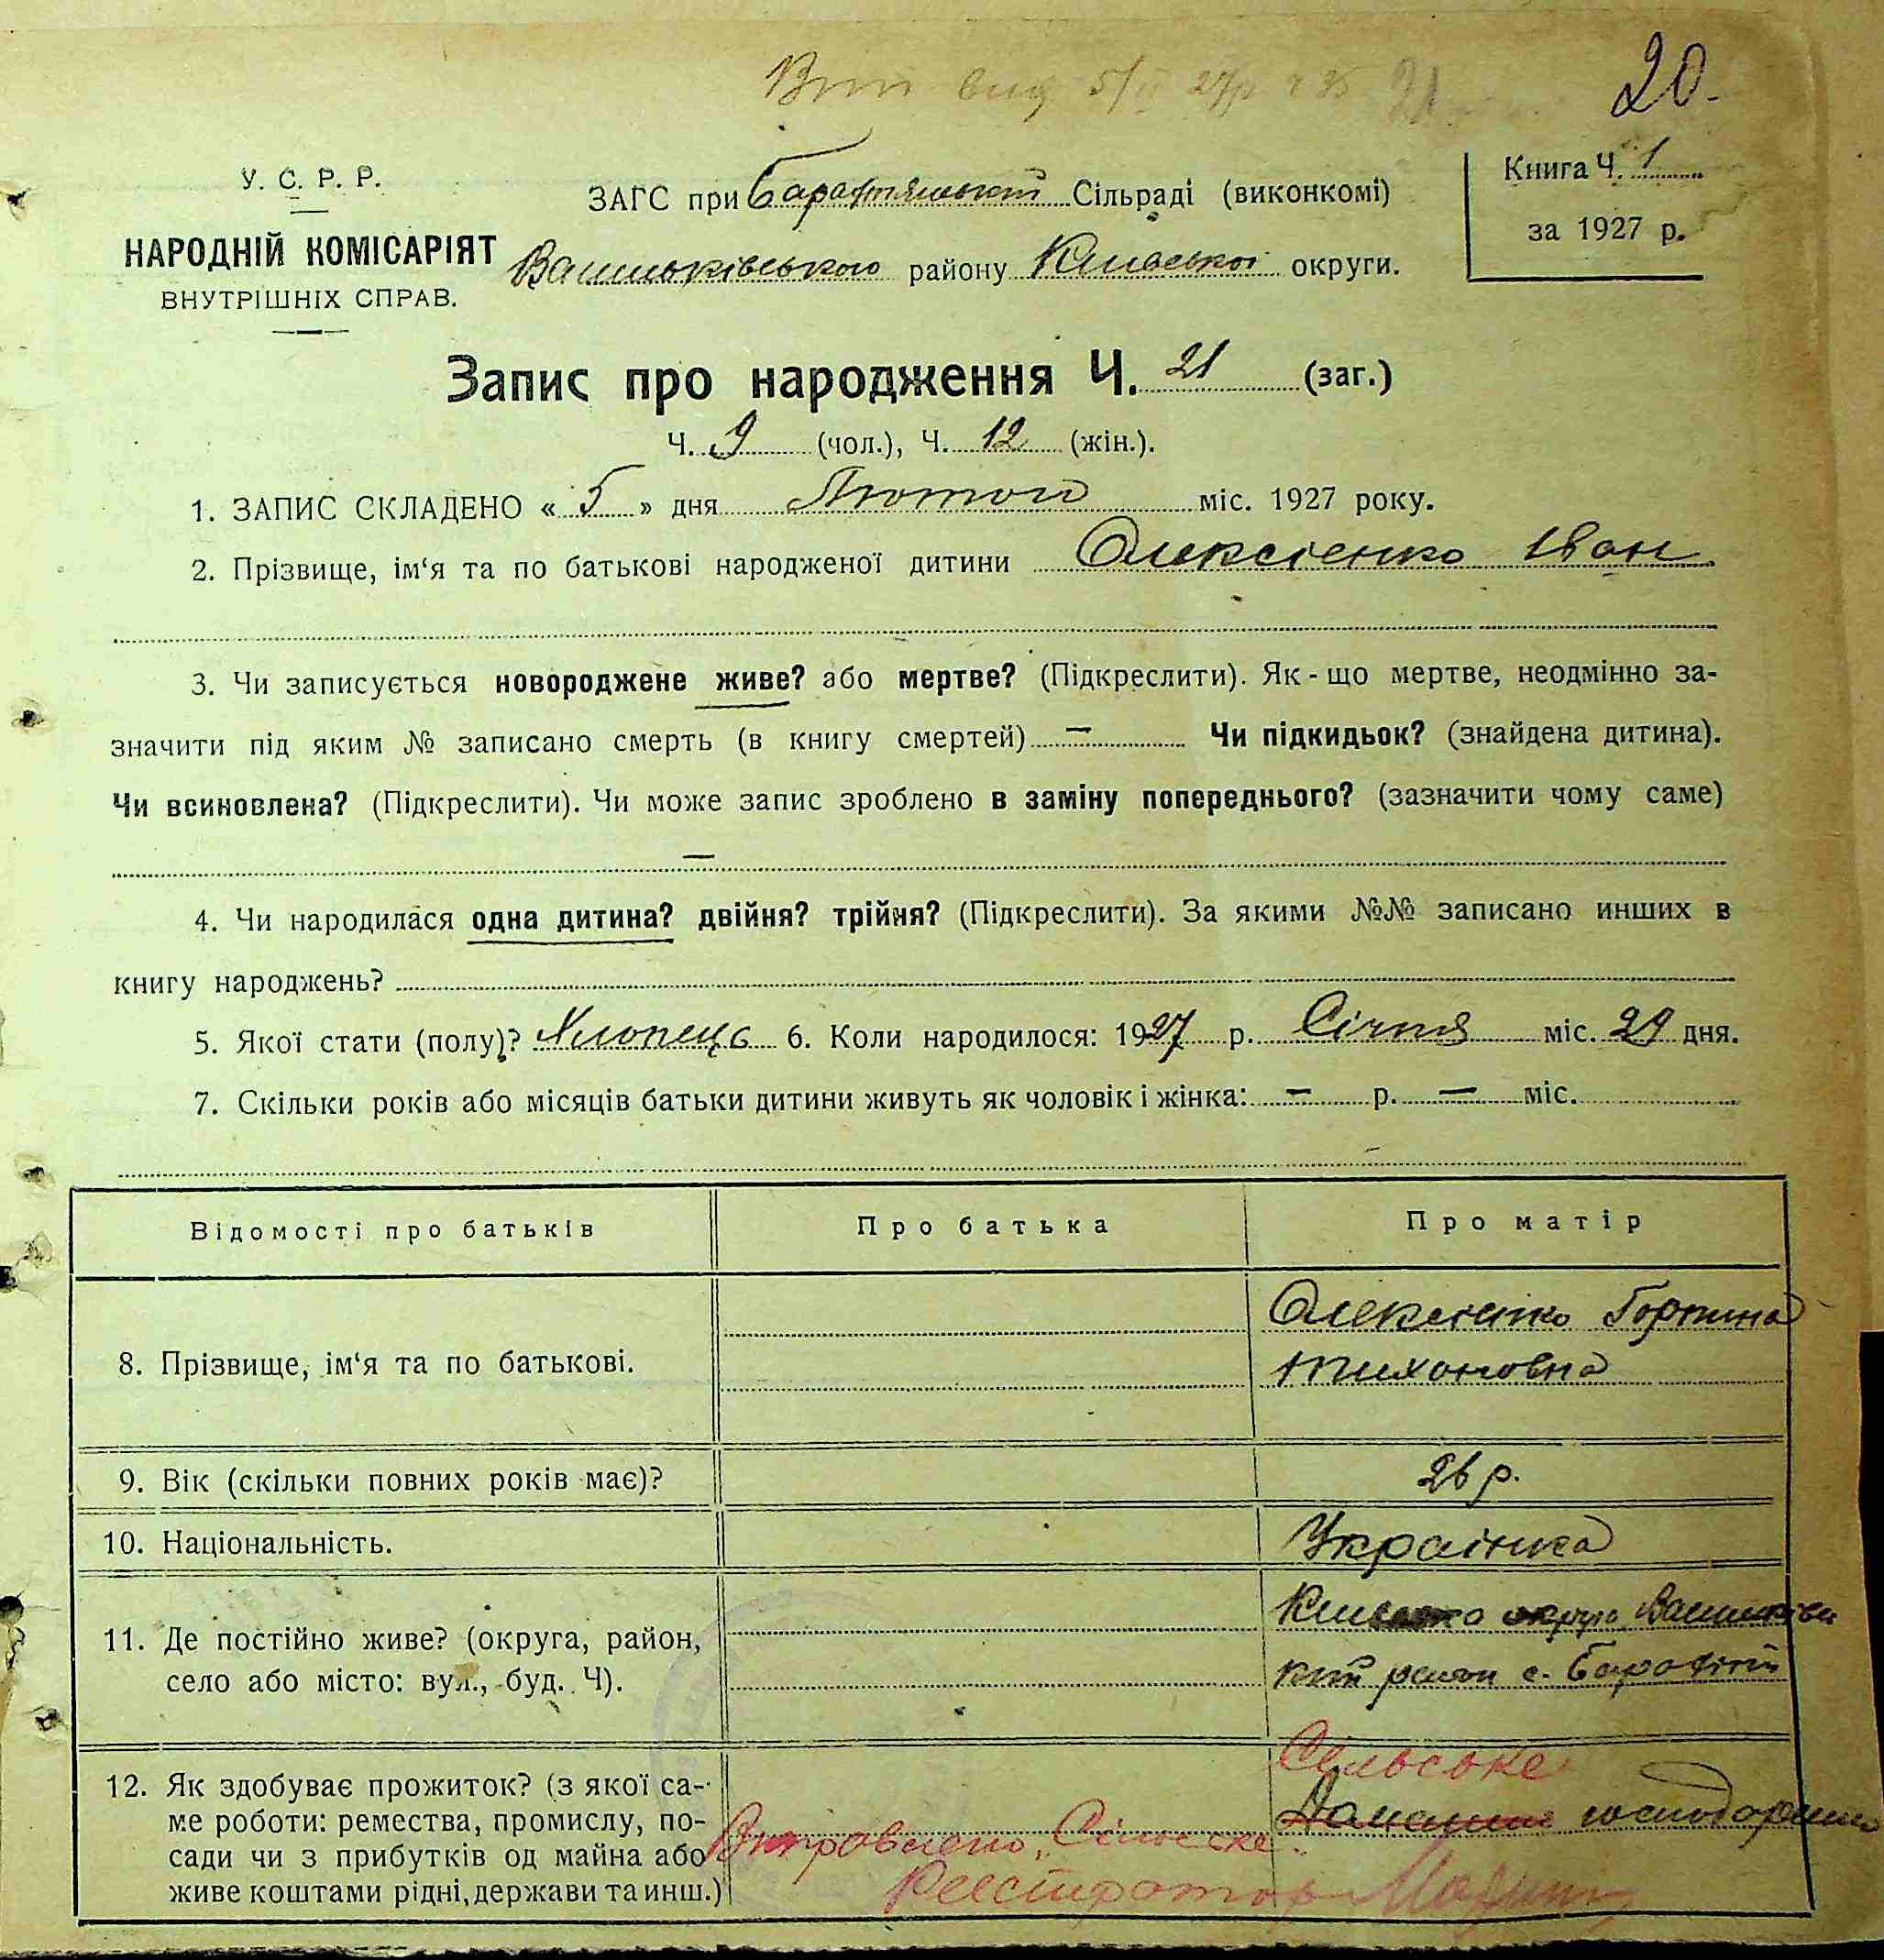 20.
У. С. Р. Р.
НАРОДНІЙ КОМІСАРІЯТ
ВНУТРІШНІХ СПРАВ.
ЗАГС при Барахтянській Сільраді (виконкомі)
Васильківського району Київської округи.
Книга Ч. 1
за 1927 р.
Запис про народження Ч. 21 (заг.)
Ч. 9 (чол.), Ч. 12 (жін.).
1. ЗАПИС СКЛАДЕНО « 5 » дня Лютого міс. 1927 року.
2. Прізвище, ім‘я та по батькові народженої дитини Олексієнко Іван
3. Чи записується новороджене живе? або мертве? (Підкреслити). Як-що мертве, неодмінно за-
значити під яким № записано смерть (в книгу смертей) — Чи підкидьок? (знайдена дитина).
Чи всиновлена? (Підкреслити). Чи може запис зроблено в заміну попереднього? (зазначити чому саме)
—
4. Чи народилася одна дитина? двійня? трійня? (Підкреслити). За якими №№ записано инших в
книгу народжень?
5. Якої стати (полу)? Хлопець 6. Коли народилося: 1927 р. Січня міс. 29 дня.
7. Скільки років або місяців батьки дитини живуть як чоловік і жінка: — р. — міс.
Відомості про батьків Про батька Про матір
8. Прізвище, ім‘я та по батькові.
Олексієнко Горпина
Тихоновна
9. Вік (скільки повних років має)? 26 р.
10. Національність. Українка
11. Де постійно живе? (округа, район,
село або місто: вул., буд. Ч).
округа Васильківсь
кий район с. Барахти
12. Як здобуває прожиток? (з якої са-
ме роботи: ремества, промислу, по-
сади чи з прибутків од майна або
живе коштами рідні, держави та инш.)
Сельське
Домашнє господарство
"Сільське"
Реєстратор